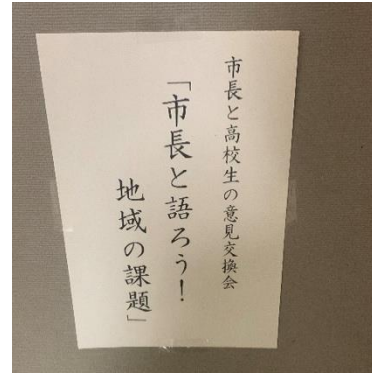 市長と高校生の意見交換会
「市長と語ろう！
地域の課題」